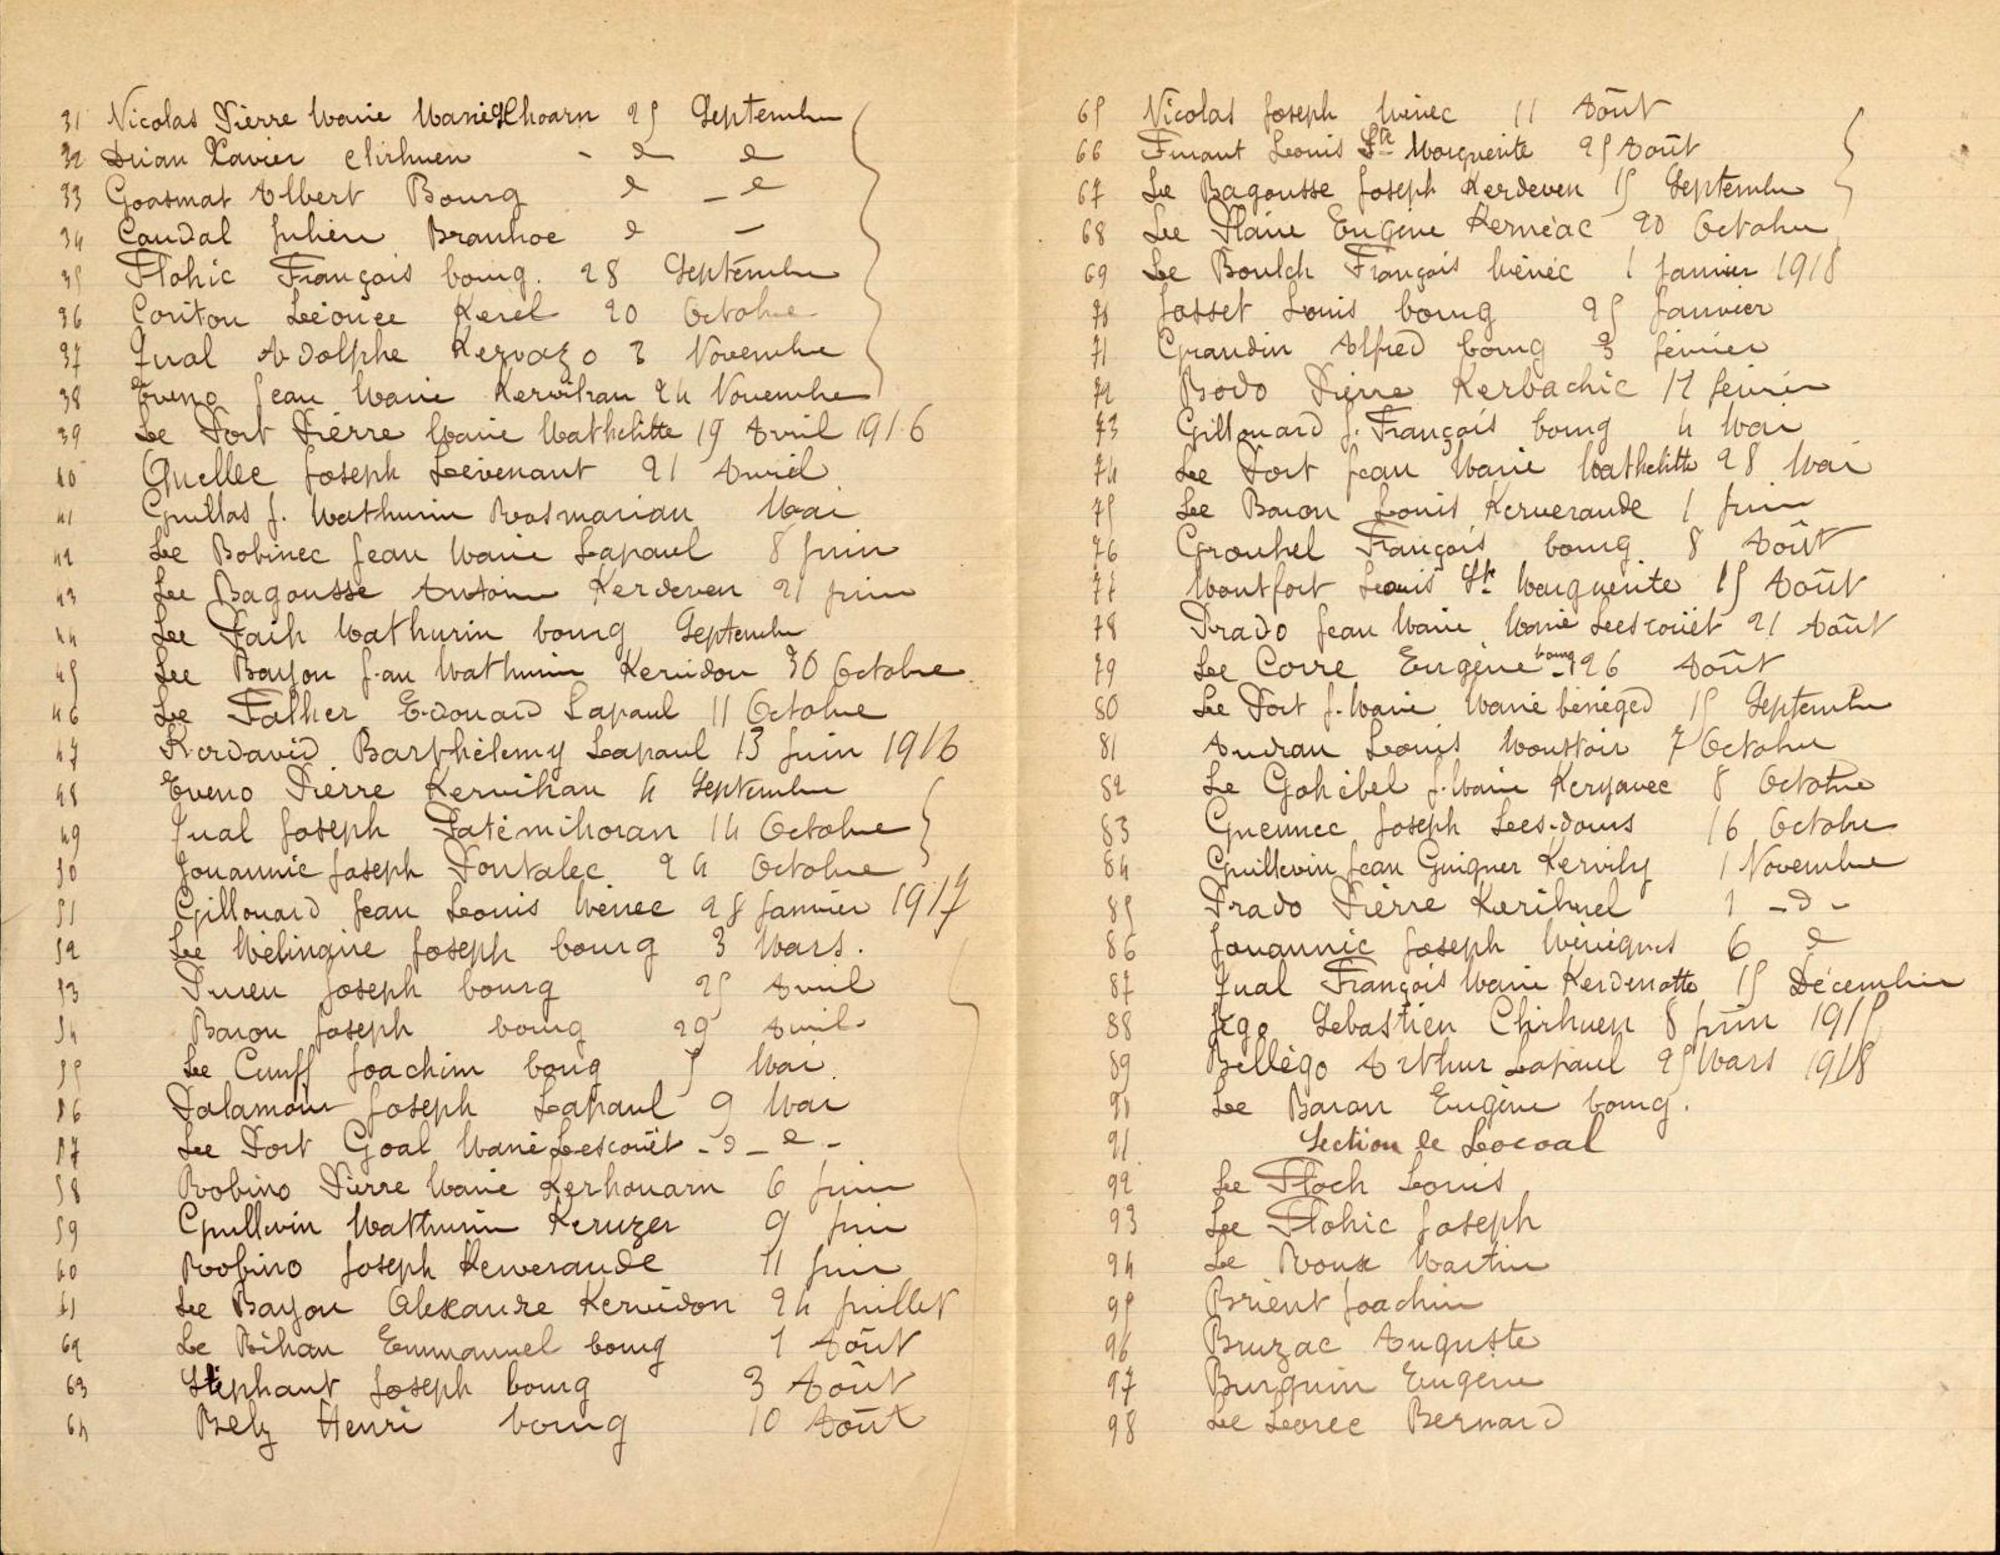 31 Nicolas Pierre Marie Mané Hhoarn 25 Septembre
32 Drian Xavier Clirhuen - d d
33 Goasmat Albert Bourg d - d
34 Caudal Julien Branhoc d -
35 Flohic François bourg. 28 Septembre
36 Coritou Léonce Kerel 20 Octobre
37 Jual Adolphe Kervazo 3 Novembre
38 Eveno Jean Marie Kervihan 24 Novembre
39 Le Port Pierre Marie Mathelitte 19 Avril 1916
40 Quellec Joseph Lézévenant 21 Avril
41 Guillas J. Mathurin Rosmarian Mai
42 Le Bobinec Jean Marie Lapaul 8 Juin
43 Le Bagousse Antoine Kerdeven 21 Juin
44 Le Faih Mathurin bourg Septembre
45 Le Bayon Jean Mathurin Kervidou 30 Octobre
46 Le Falher Edouard Lapaul 11 Octobre
47 Kerdavid Barthélemy Lapaul 13 Juin 1916
48 Eveno Pierre Kervihan 4 Septembre
49 Jual Joseph Fatémihoran 14 Octobre
50 Jouannic Joseph Pontalec 24 Octobre
51 Gillouard Jean Louis Ménec 28 Janvier 1917
52 Le Mélinaire Joseph bourg 3 Mars.
53 Pureu Joseph bourg 25 Avril
54 Baron Joseph bourg 29 Avril
55 Le Cunff Joachim bourg 5 Mai.
56 Palamour Joseph Lapaul 9 Mai
57 Le Port Goal Mané Lescouët - d - d -
58 Robino Pierre Marie Kerhouarn 6 Juin
59 Guillevin Mathurin Keruzer 9 Juin
60 Robino Joseph Kerverande 11 Juin
61 Le Bayon Alexandre Kervidon 24 Juillet
62 Le Bihan Emmanuel bourg 1 Août
63 Stéphant Joseph bourg 3 Août
64 Belz Henri bourg 10 Août
65 Nicolas Joseph Ménec 11 Août
66 Furaut Louis Ste Marguerite 25 Août
67 Le Bagousse Joseph Kerdeven 15 Septembre
68 Le Plaire Eugène Kernéac 20 Octobre
69 Le Boulch François Ménec 1 Janvier 1918
70 Josset Louis bourg 25 Janvier
71 Grandin Alfred bourg 3 février
72 Bodo Pierre Kerbachic 17 février
73 Gillouard J. François bourg 4 Mai
74 Le Port Jean Marie Mathelitte 28 Mai
75 Le Baron Louis Kerverande 1 Juin
76 Grouhel François bourg 8 Août
77 Montfort Louis Ste Marguerite 15 Août
78 Prado Jean Marie Mané Lescouët 21 Août
79 Le Corre Eugène bourg 26 Août
80 Le Port J. Marie Mané bénéged 15 Septembre
81 Audran Louis Moustoir 7 Octobre
82 Le Gohébel J. Marie Keryavec 8 Octobre
83 Guennec Joseph Lesdouis 16 Octobre
84 Guillevin Jean Guigner Kervily 1 Novembre
85 Prado Pierre Kerihuel 1 - d -
86 Jouannic Joseph Méniques 6 d
87 Jual François Marie Kerdenotte 15 Décembre
88 Jégo Sébastien Clirhuen 8 Juin 1915
89 Bellégo Arthur Lapaul 25 Mars 1918
90 Le Baron Eugène bourg.
91 Section de Locoal
92 Le Floch Louis
93 Le Flohic Joseph
94 Le Roux Martin
95 Brient Joachim
96 Bruzac Auguste
97 Burguin Eugène
98 Le Lorec Bernard